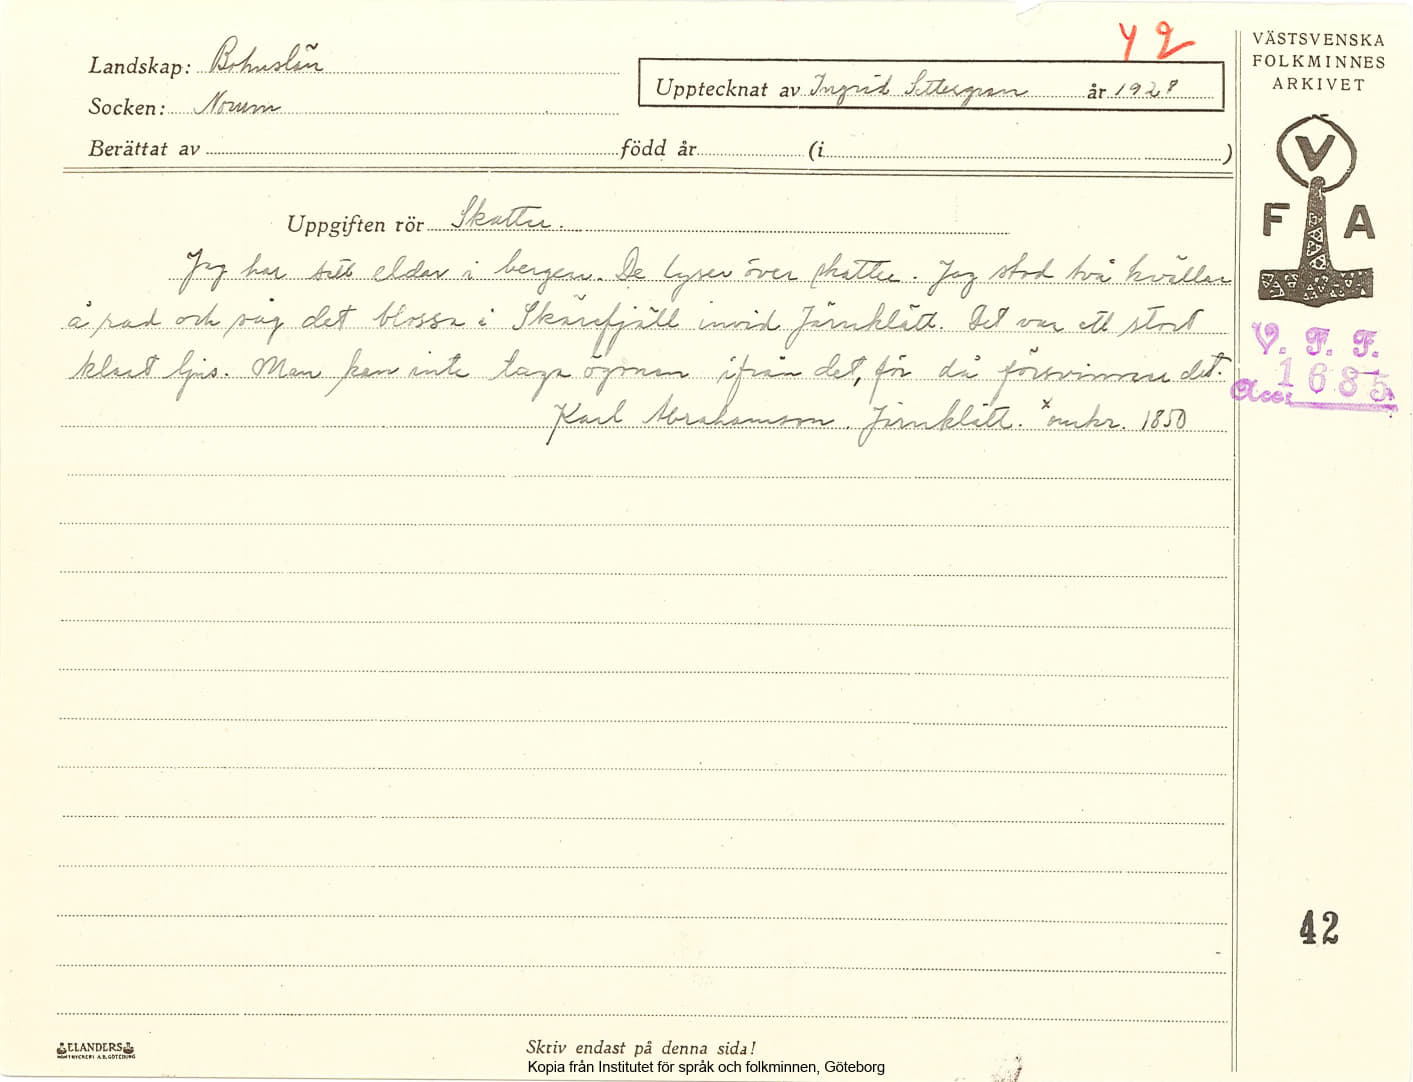 42
Landskap: Bohuslän
Socken: Norum
Upptecknat av Ingrid Settergran år 1928
Berättat av född år (i )
Uppgiften rör Skatter.
Jag har sett eldar i bergen. De lyser över skatter. Jag stod två kvällar
å rad och såg det blossa i Skärefjäll invid Järnklätt. Det var ett stort
klart ljus. Man kan inte taga ögonen ifrån det, för då försvinner det.
Karl Abrahamson. Järnklätt. x omkr. 1850
VÄSTSVENSKA
FOLKMINNES
ARKIVET
V
F A
V. F. F.
Acc: 1685
42
ELANDERS
Skriv endast på denna sida!
Kopia från Institutet för språk och folkminnen, Göteborg